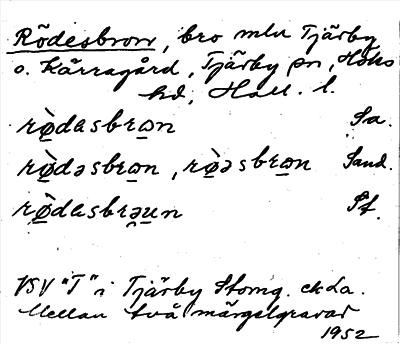 Rödesbron, bro mln Tjärby
o. Kärragård, Tjärby sn, Höks
hd, Hall. l.
rø̀dasbrωn Sa.
rø̀dəsbrωn, rø̀əsbrωn Sand.
rø̀dasbrəun Sf.
VSV "T" i Tjärby Stomg. ekLa.
Mellan två märgelgravar
1952